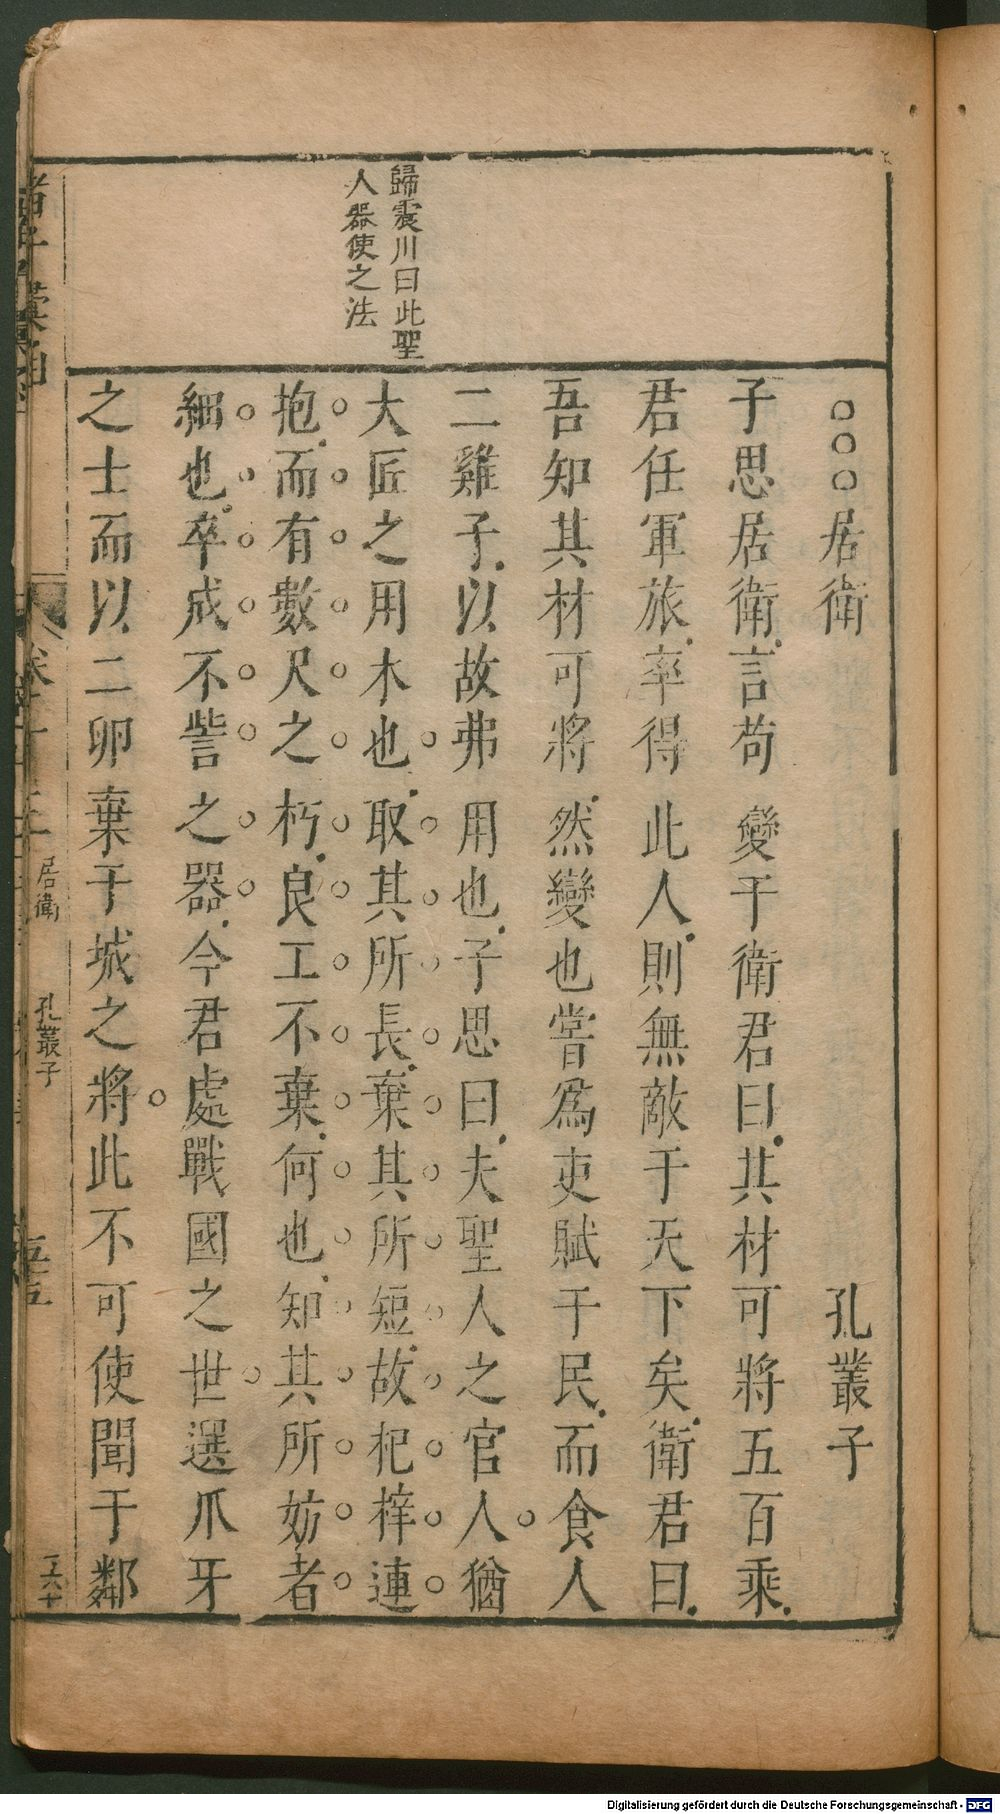 歸震川曰此聖
人器使之法
○○○居衛 孔叢子
子思居衛言苟變于衛君曰其材可將五百乘
君任軍旅率得此人則無敵于天下矣衛君曰
吾知其材可將然變也嘗爲吏賦于民而食人
二雞子以故弗用也子思曰夫聖人之官人猶
大匠之用木也取其所長棄其所短故杞梓連
抱而有數尺之朽良工不棄何也知其所妨者
細也卒成不訾之器今君處戰國之世選爪牙
之士而以二卵棄干城之將此不可使聞于鄰
居衛
孔叢子
Digitalisierung gefördert durch die Deutsche Forschungsgemeinschaft - DFG